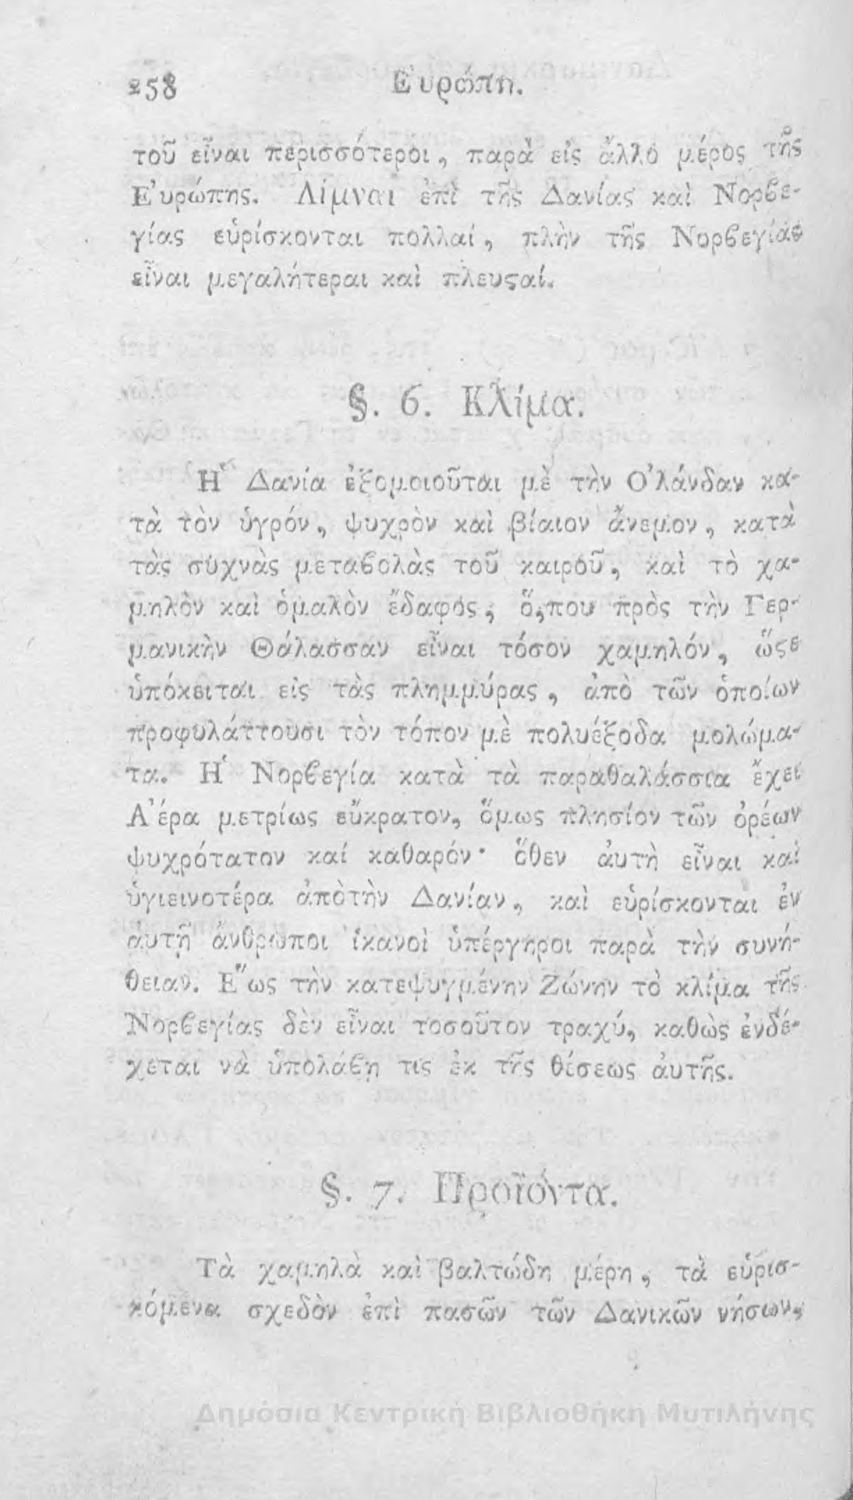 258 Εὐρώπη.
τοῦ εἶναι περισσότεροι, παρὰ εἰς ἄλλο μέρος τῆς
Εὐρώπης. Λίμναι ἐπὶ τῆς Δανίας καὶ Νορϐε-
γίας εὑρίσκονται πολλαί, πλὴν τῆς Νορϐεγίας
εἶναι μεγαλήτεραι καὶ πλευϛαί.
§. 6. Κλίμα.
Ἡ Δανία ἐξομοιοῦται μὲ τὴν Ὀλάνδαν κα-
τὰ τὸν ὑγρόν, ψυχρὸν καὶ βίαιον ἄνεμον, κατὰ
τὰς συχνὰς μεταϐολὰς τοῦ καιροῦ, καὶ τὸ χα-
μηλὸν καὶ ὁμαλὸν ἔδαφος, ὅ,που πρὸς τὴν Γερ-
μανικὴν Θάλασσαν εἶναι τόσον χαμηλόν, ὥϛε
ὑπόκειται εἰς τὰς πλημμύρας, ἀπὸ τῶν ὁποίων
προφυλάττουσι τὸν τόπον μὲ πολυέξοδα μολώμα-
τα. Ἡ Νορϐεγία κατὰ τὰ παραθαλάσσια ἔχει
Ἀέρα μετρίως εὔκρατον, ὅμως πλησίον τῶν ὀρέων
ψυχρότατον καί καθαρόν· ὅθεν ἀυτὴ εἶναι καὶ
ὑγιεινοτέρα ἀπὸτὴν Δανίαν, καὶ εὑρίσκονται ἐν
ἀυτῇ ἄνθρωποι ἱκανοὶ ὑπέργηροι παρὰ τὴν συνή-
θειαν. Ἕως τὴν κατεψυγμένην Ζώνην τὸ κλίμα τῆς
Νορϐεγίας δὲν εἶναι τοσοῦτον τραχύ, καθὼς ἐνδέ-
χεται νὰ ὑπολάϐῃ τις ἐκ τῆς θέσεως ἀυτῆς.
§. 7. Προϊόντα.
Τὰ χαμηλὰ καὶ βαλτώδη μέρη, τὰ εὑρισ-
κόμενα σχεδὸν ἐπὶ πασῶν τῶν Δανικῶν νήσων,
Δημόσια Κεντρική Βιβλιοθήκη Μυτιλήνης